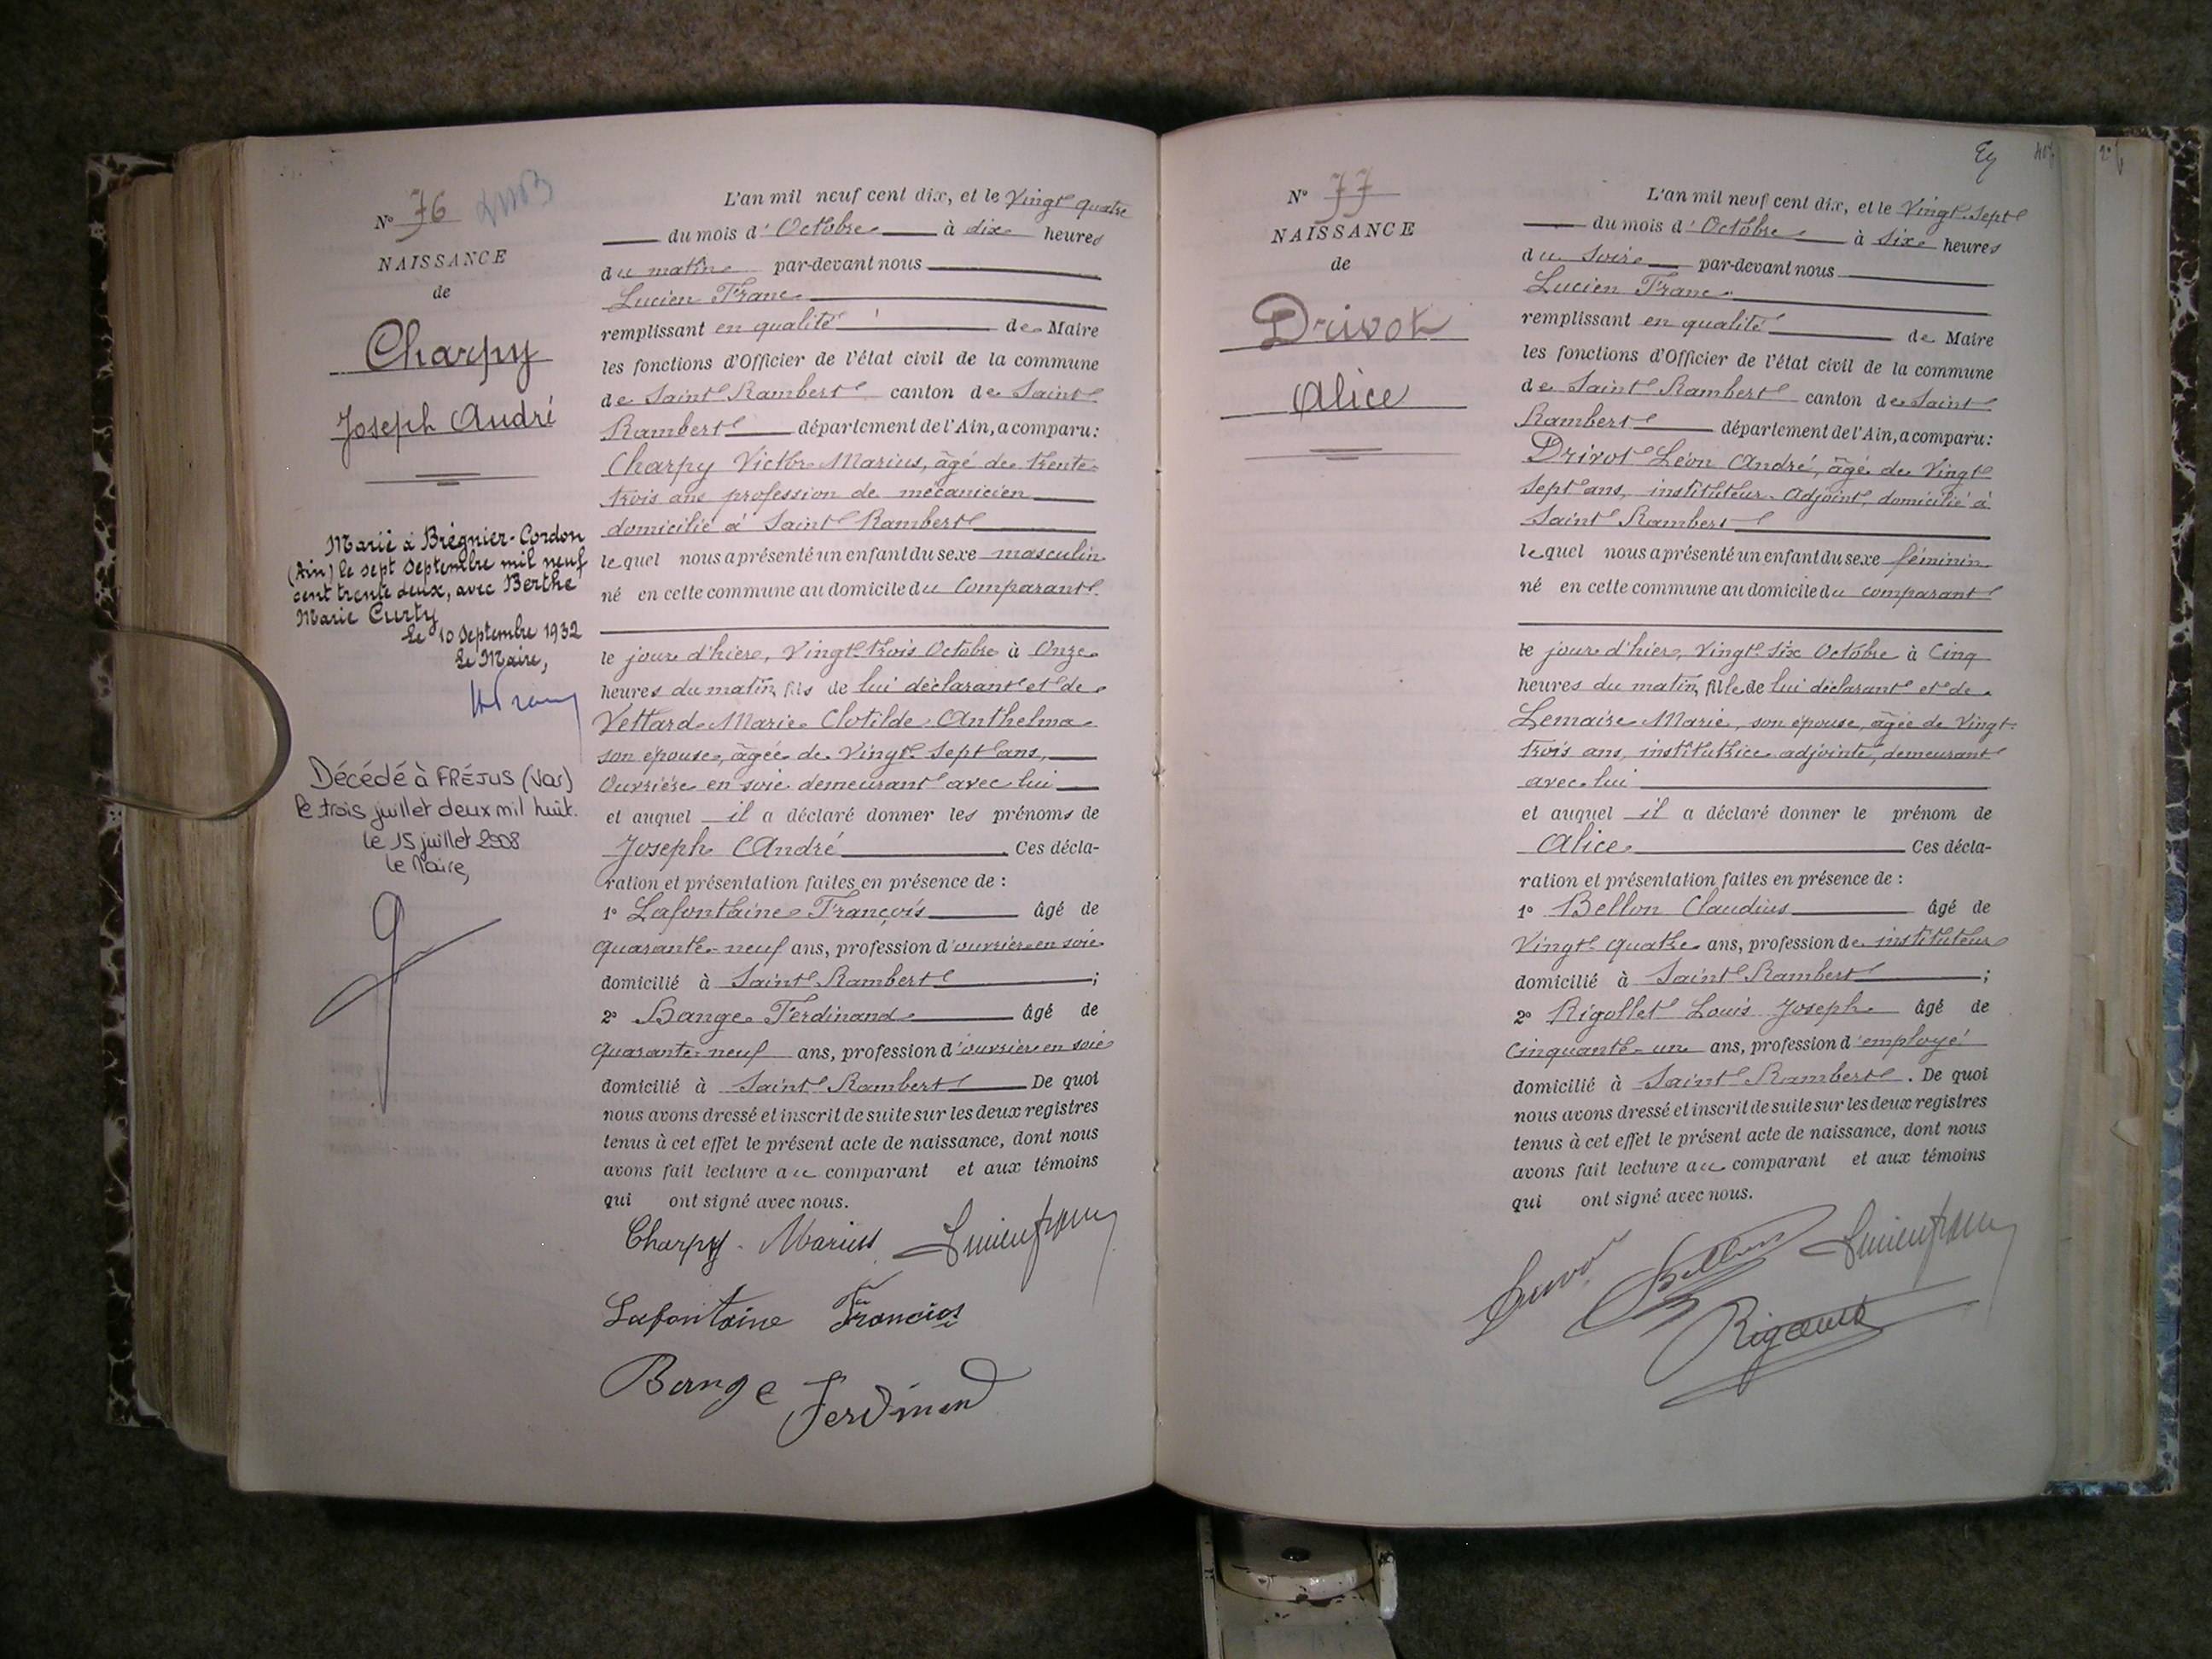 N° 76
NAISSANCE
de
Charpy
Joseph André
Marié à Brégnier-Cordon
(Ain) le sept Septembre mil neuf
cent trente deux, avec Berthe
Marie Curty
Le 10 Septembre 1932
Le Maire,
Décédé à FRÉJUS (Var)
le trois juillet deux mil huit.
le 15 juillet 2008
le Maire,
L'an mil neuf cent dix, et le Vingt quatre
du mois d'Octobre à dix heures
du matin par-devant nous
Lucien Franc
remplissant en qualité de Maire
les fonctions d'Officier de l'état civil de la commune
de Saint Rambert canton de Saint
Rambert département de l'Ain, a comparu:
Charpy Victor Marius, âgé de trente
trois ans profession de mécanicien
domicilié à Saint Rambert
lequel nous a présenté un enfant du sexe masculin
né en cette commune au domicile du Comparant
le jour d'hier, Vingt trois Octobre à Onze
heures du matin, fils de lui déclarant et de
Vettard Marie Clotilde Anthelma
son épouse, âgée de Vingt Sept ans,
Ouvrière en soie demeurant avec lui
et auquel il a déclaré donner les prénoms de
Joseph André Ces décla-
ration et présentation faites en présence de :
1° Lafontaine François âgé de
quarante-neuf ans, profession d'ouvrier en soie
domicilié à Saint Rambert ;
2° Bange Ferdinand âgé de
Quarante-neuf ans, profession d'ouvrier en soie
domicilié à Saint Rambert De quoi
nous avons dressé et inscrit de suite sur les deux registres
tenus à cet effet le présent acte de naissance, dont nous
avons fait lecture au comparant et aux témoins
qui ont signé avec nous.
Charpy Marius Lucien Franc
Lafontaine François
Bange Ferdinand
N° 77
NAISSANCE
de
Drivot
Alice
L'an mil neuf cent dix, et le Vingt-Sept
du mois d'Octobre à six heures
du soir par-devant nous
Lucien Franc
remplissant en qualité de Maire
les fonctions d'Officier de l'état civil de la commune
de Saint Rambert canton de Saint
Rambert département de l'Ain, a comparu:
Drivot Léon André, âgé de Vingt
Sept ans, instituteur-adjoint, domicilié à
Saint Rambert
lequel nous a présenté un enfant du sexe féminin
né en cette commune au domicile du comparant
le jour d'hier, Vingt-Six Octobre à Cinq
heures du matin, fille de lui déclarant et de
Lemaire Marie, son épouse, âgée de Vingt
trois ans, institutrice adjointe, demeurant
avec lui
et auquel il a déclaré donner le prénom de
Alice Ces décla-
ration et présentation faites en présence de :
1° Bellon Claudius âgé de
Vingt quatre ans, profession de instituteur
domicilié à Saint Rambert ;
2° Rigollet Louis Joseph âgé de
Cinquante-un ans, profession d'employé
domicilié à Saint Rambert. De quoi
nous avons dressé et inscrit de suite sur les deux registres
tenus à cet effet le présent acte de naissance, dont nous
avons fait lecture au comparant et aux témoins
qui ont signé avec nous.
Bellon Lucien Franc